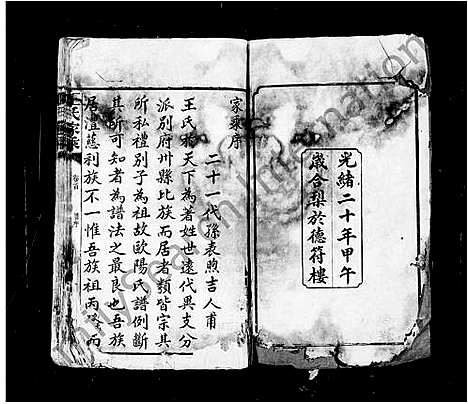 光緒二十年甲午
歲合梨於德符樓
家乘序
二十一代孫表煦吉人甫
王氏於天下為著姓世遠代異支分
派別府州縣比族而居者類皆宗其
所私禮別子為祖故歐陽氏譜例斷
其所可知者為譜法之最良也吾族
居澧慈利族不一惟吾族祖丙公而
王氏家乘
卷首